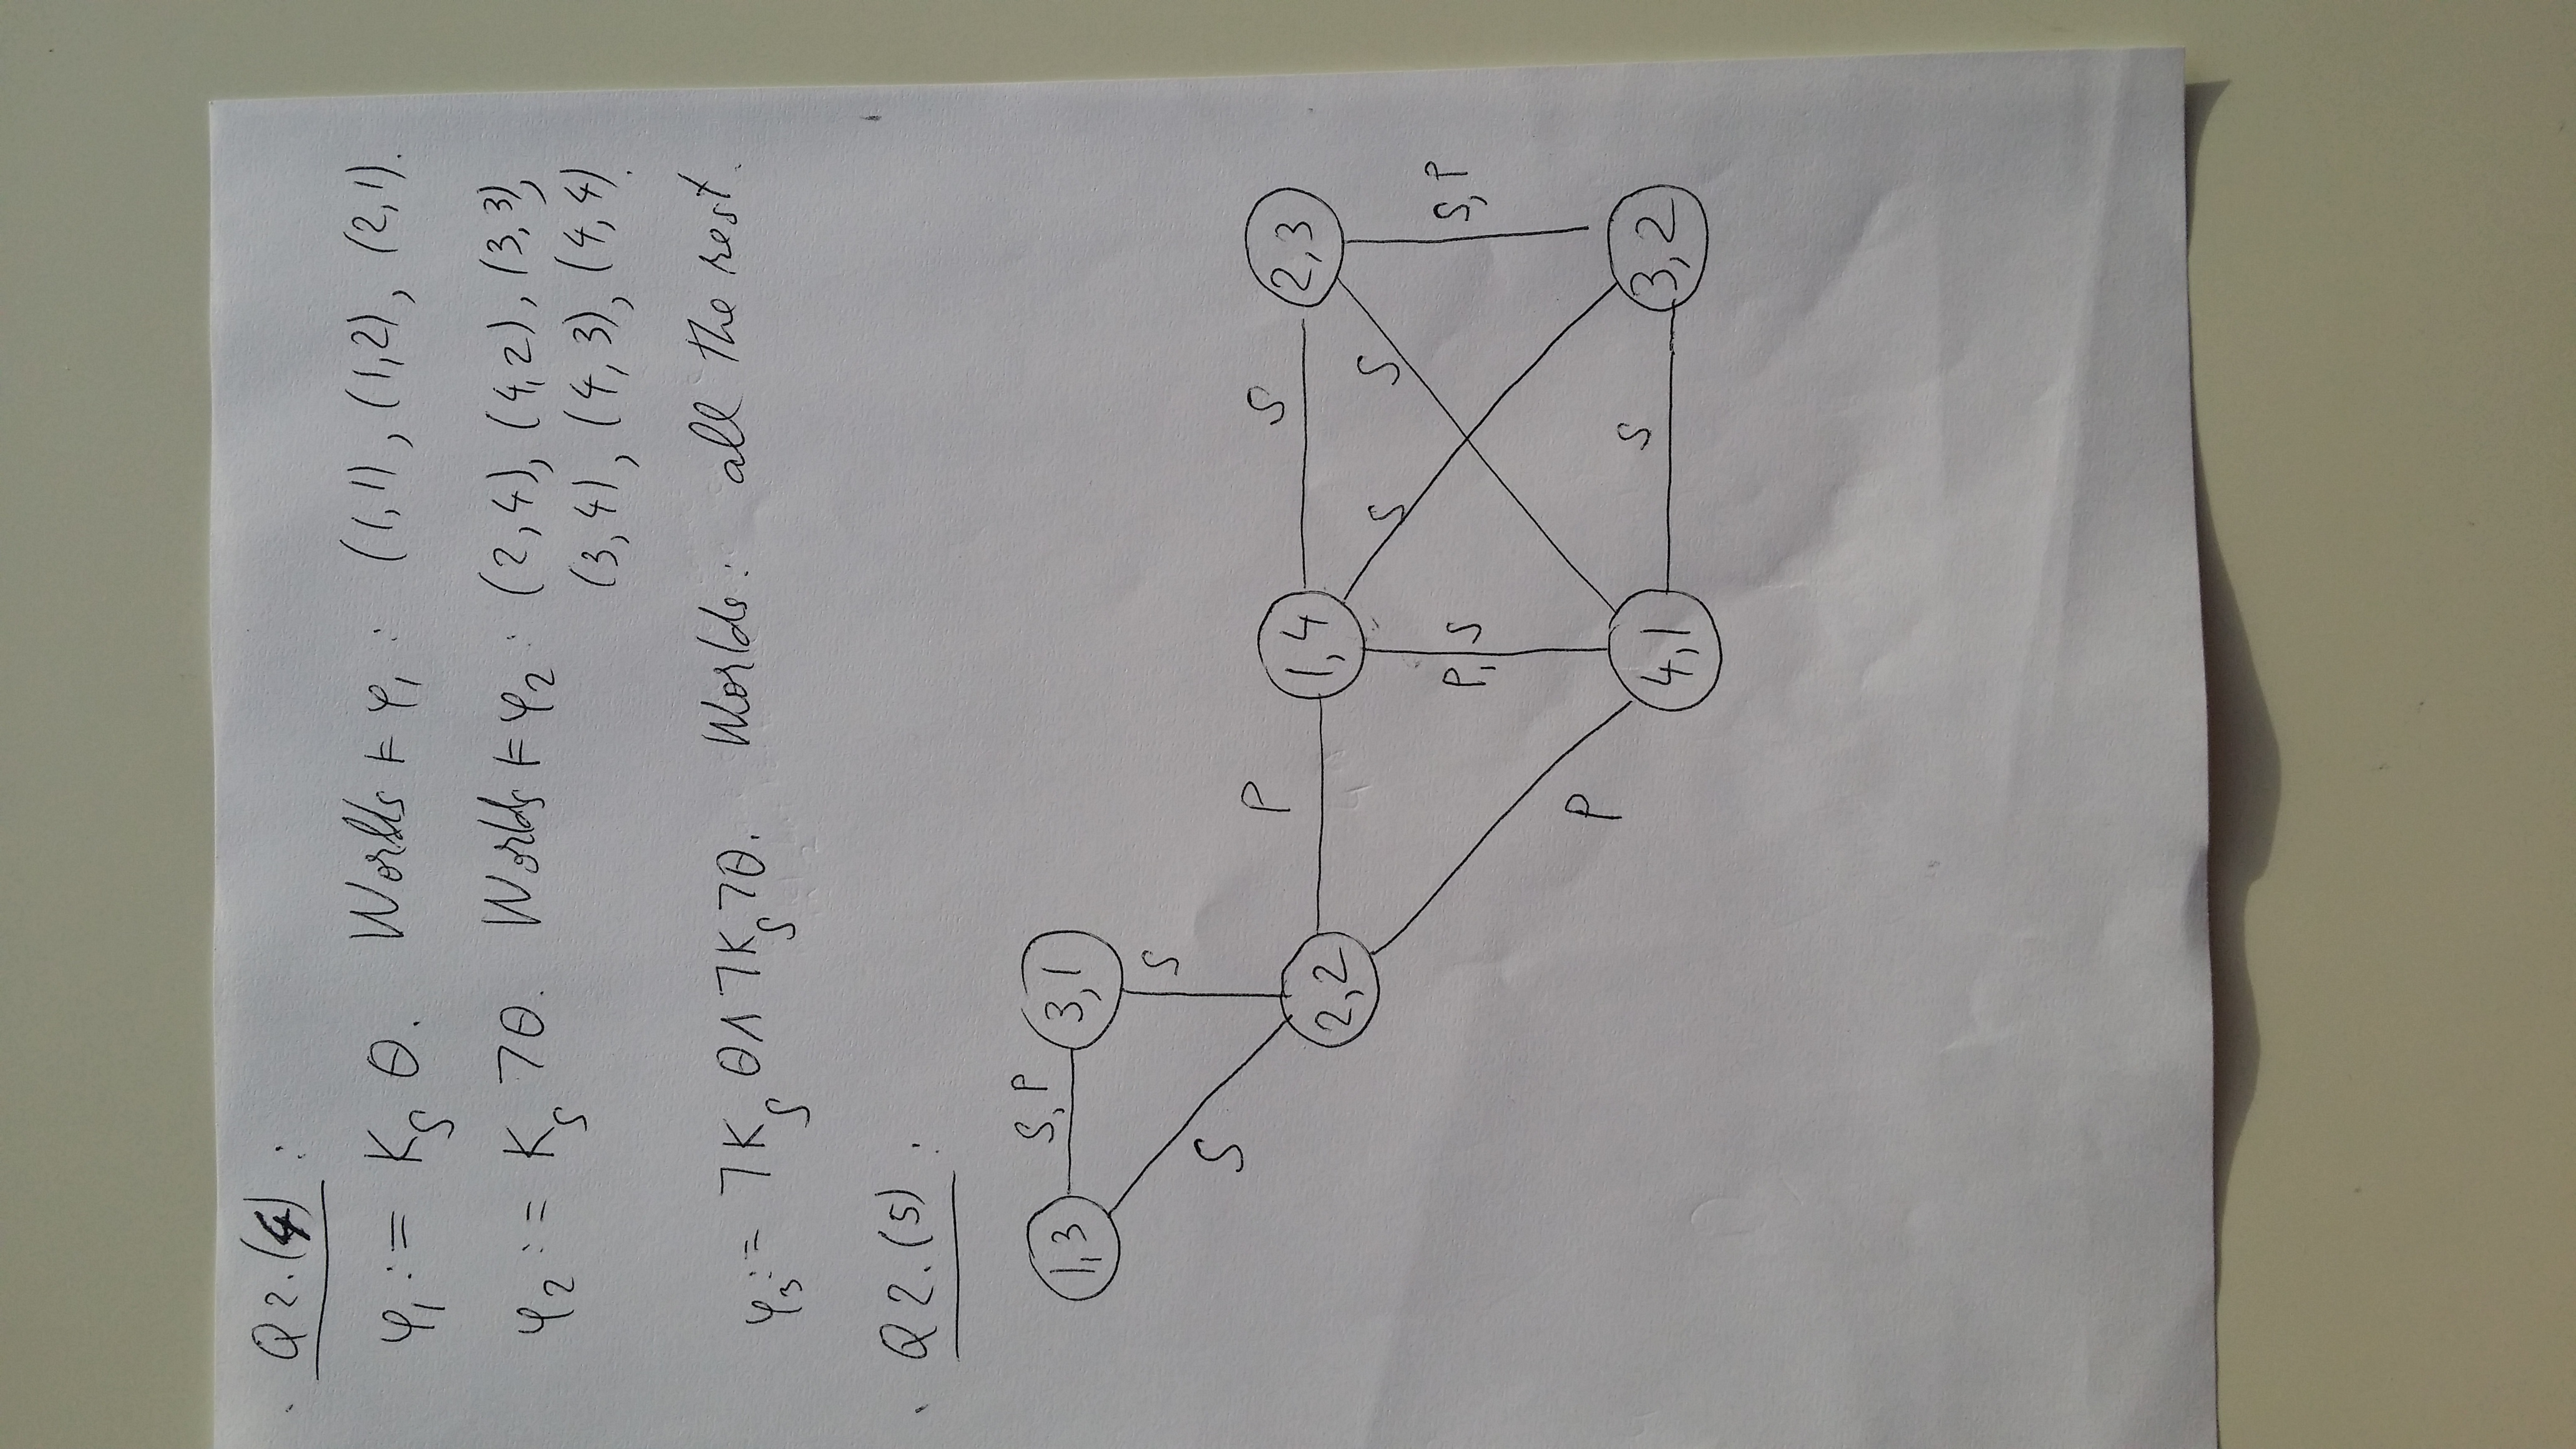 Q2.(4):
φ₁ := K_S θ. Worlds ⊨ φ₁: (1,1), (1,2), (2,1).
φ₂ := K_S ¬θ. Worlds ⊨ φ₂: (2,4), (4,2), (3,3),
(3,4), (4,3), (4,4).
φ₃ := ¬K_S θ ∧ ¬K_S ¬θ. Worlds: all the rest.
Q2.(5):
1,3
S,P
3,1
S
S
2,2
P
1,4
S
2,3
S
S
P,S
S,P
P
4,1
S
3,2